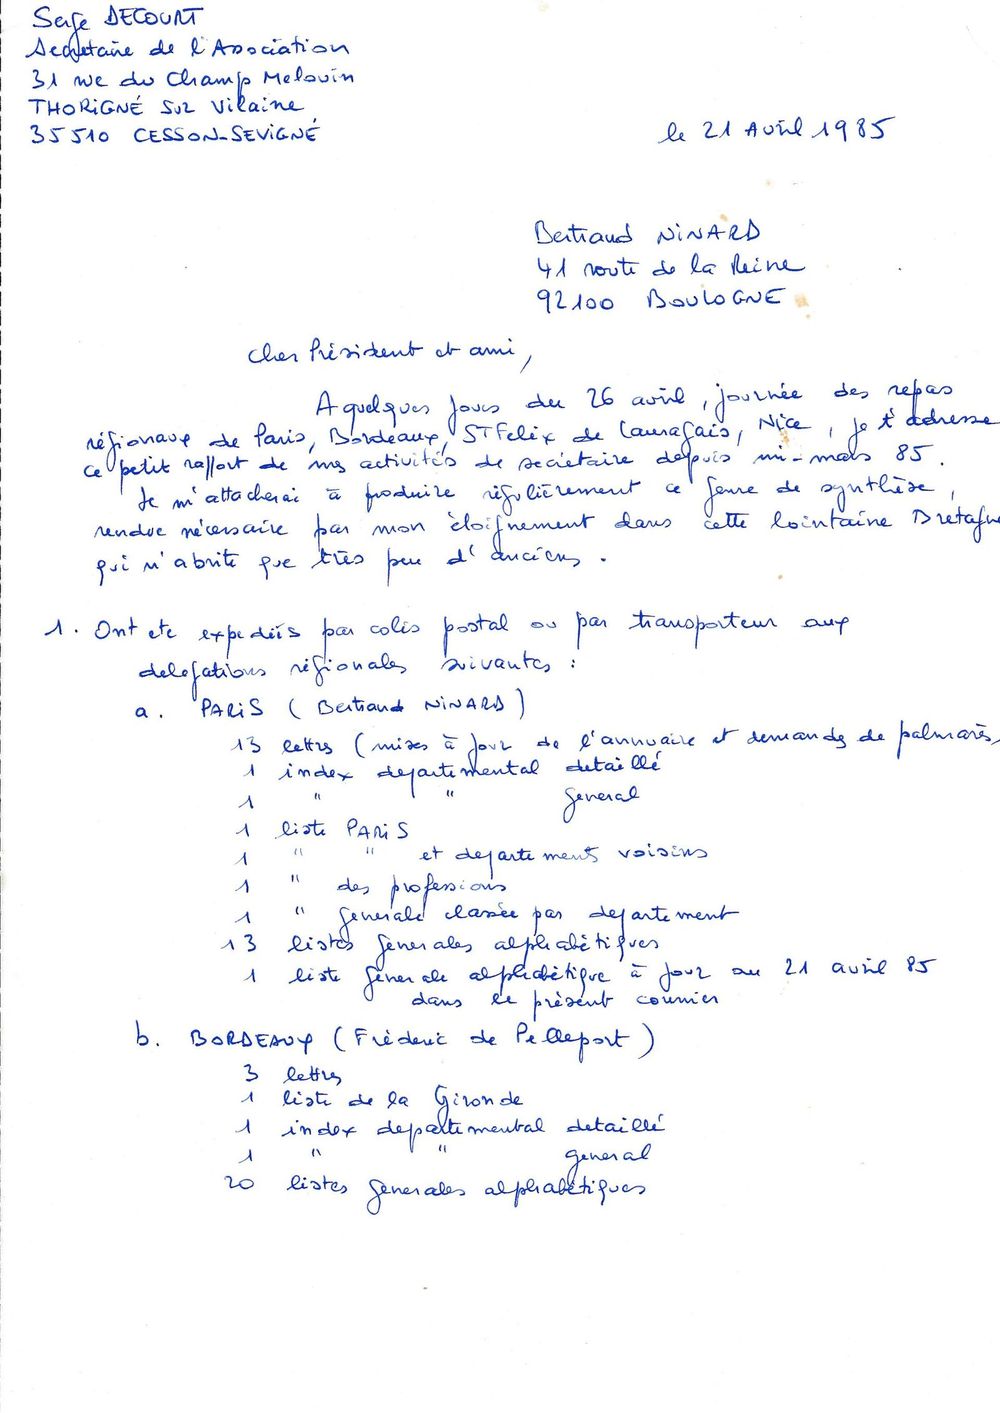 Serge DECOURT
Secrétaire de l'Association
31 rue du Champ Melouin
THORIGNÉ SUR Vilaine
35510 CESSON-SEVIGNÉ
le 21 Avril 1985
Bertrand NINARD
41 route de la Reine
92100 BOULOGNE
Cher Président et ami,
A quelques jours du 26 avril, journée des repas
régionaux de Paris, Bordeaux, ST Felix de Lauragais, Nice, je t'adresse
ce petit rapport de mes activités de secrétaire depuis mi-mars 85.
Je m'attacherai à produire régulièrement ce genre de synthèse,
rendue nécessaire par mon éloignement dans cette lointaine Bretagne
qui n'abrite que très peu d'anciens.
1. Ont ete expediés par colis postal ou par transporteur aux
delegations régionales suivantes :
a. PARIS (Bertrand NINARD)
13 lettres (mises à jour de l'annuaire et demandes de palmarès)
1 index departemental detaillé
1 " " general
1 liste PARIS
1 " " et departements voisins
1 " des professions
1 " generale classée par departement
13 listes generales alphabétiques
1 liste generale alphabétique à jour au 21 avril 85
dans le présent courrier
b. BORDEAUX (Fréderic de Pelleport)
3 lettres
1 liste de la Gironde
1 index departemental detaillé
1 " " general
20 listes generales alphabétiques